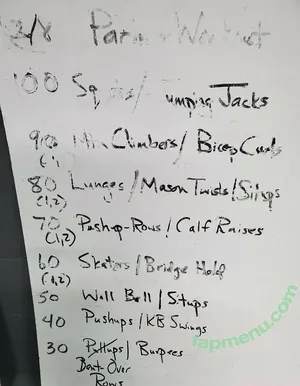 3/8 Partner Workout
100 Squats/Jumping Jacks
90 Mtn Climbers/Bicep Curls
(1,
80 Lunges/Mason Twists/Situps
(1,2)
70 Pushup-Rows/Calf Raises
(1,2)
60 Skaters/Bridge Hold
(1,2)
50 Wall Ball/Situps
40 Pushups/KB Swings
30 Pullups/Burpees
Bent Over
Rows
fapmenu.com